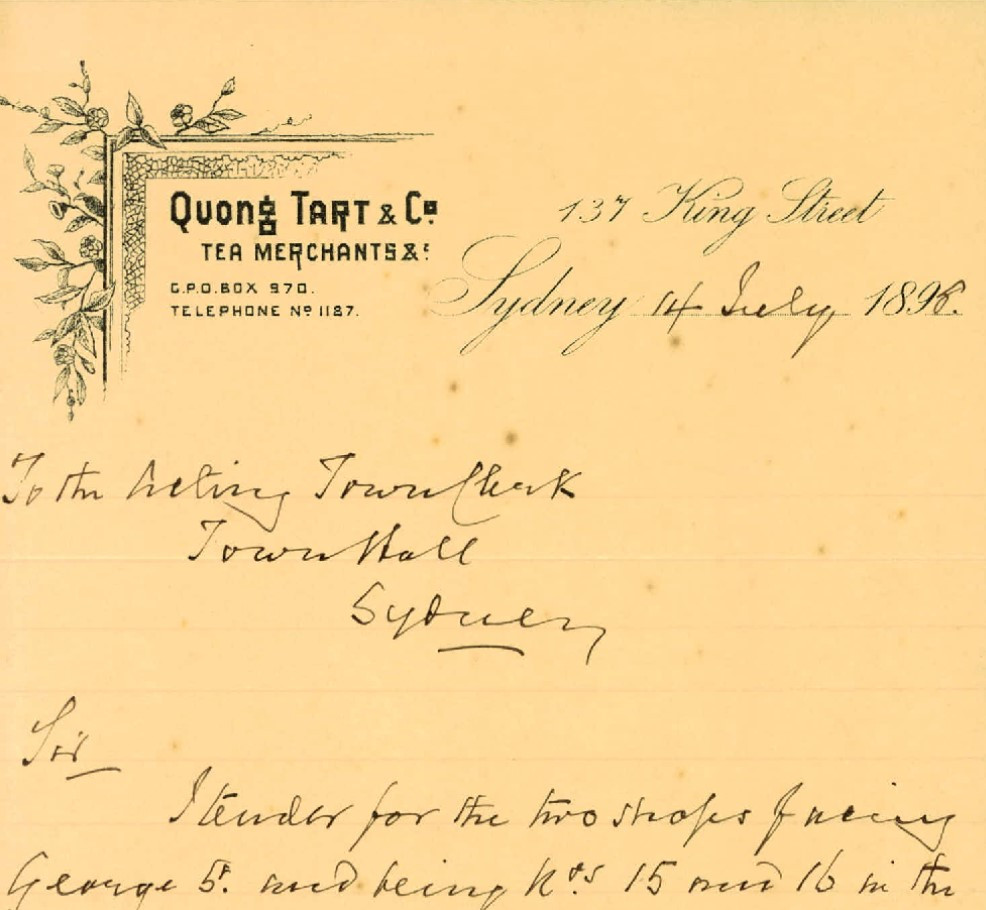 QUONG TART & Co.
TEA MERCHANTS &c
G.P.O. BOX 970.
TELEPHONE No 1187.
137 King Street
Sydney 14 July 1898.
To the Acting Town Clerk
Town Hall
Sydney
Sir
I tender for the two shops facing
George St. and being Nos 15 and 16 in the